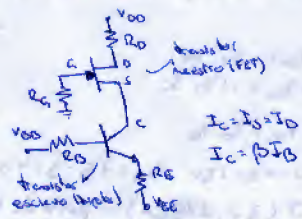 VDD
RD
D
G
S
transistor
maestro (FET)
RG
C
IC = IS = ID
VBB
RB
IC = βIB
RE
transistor
esclavo (bipolar)
VEE